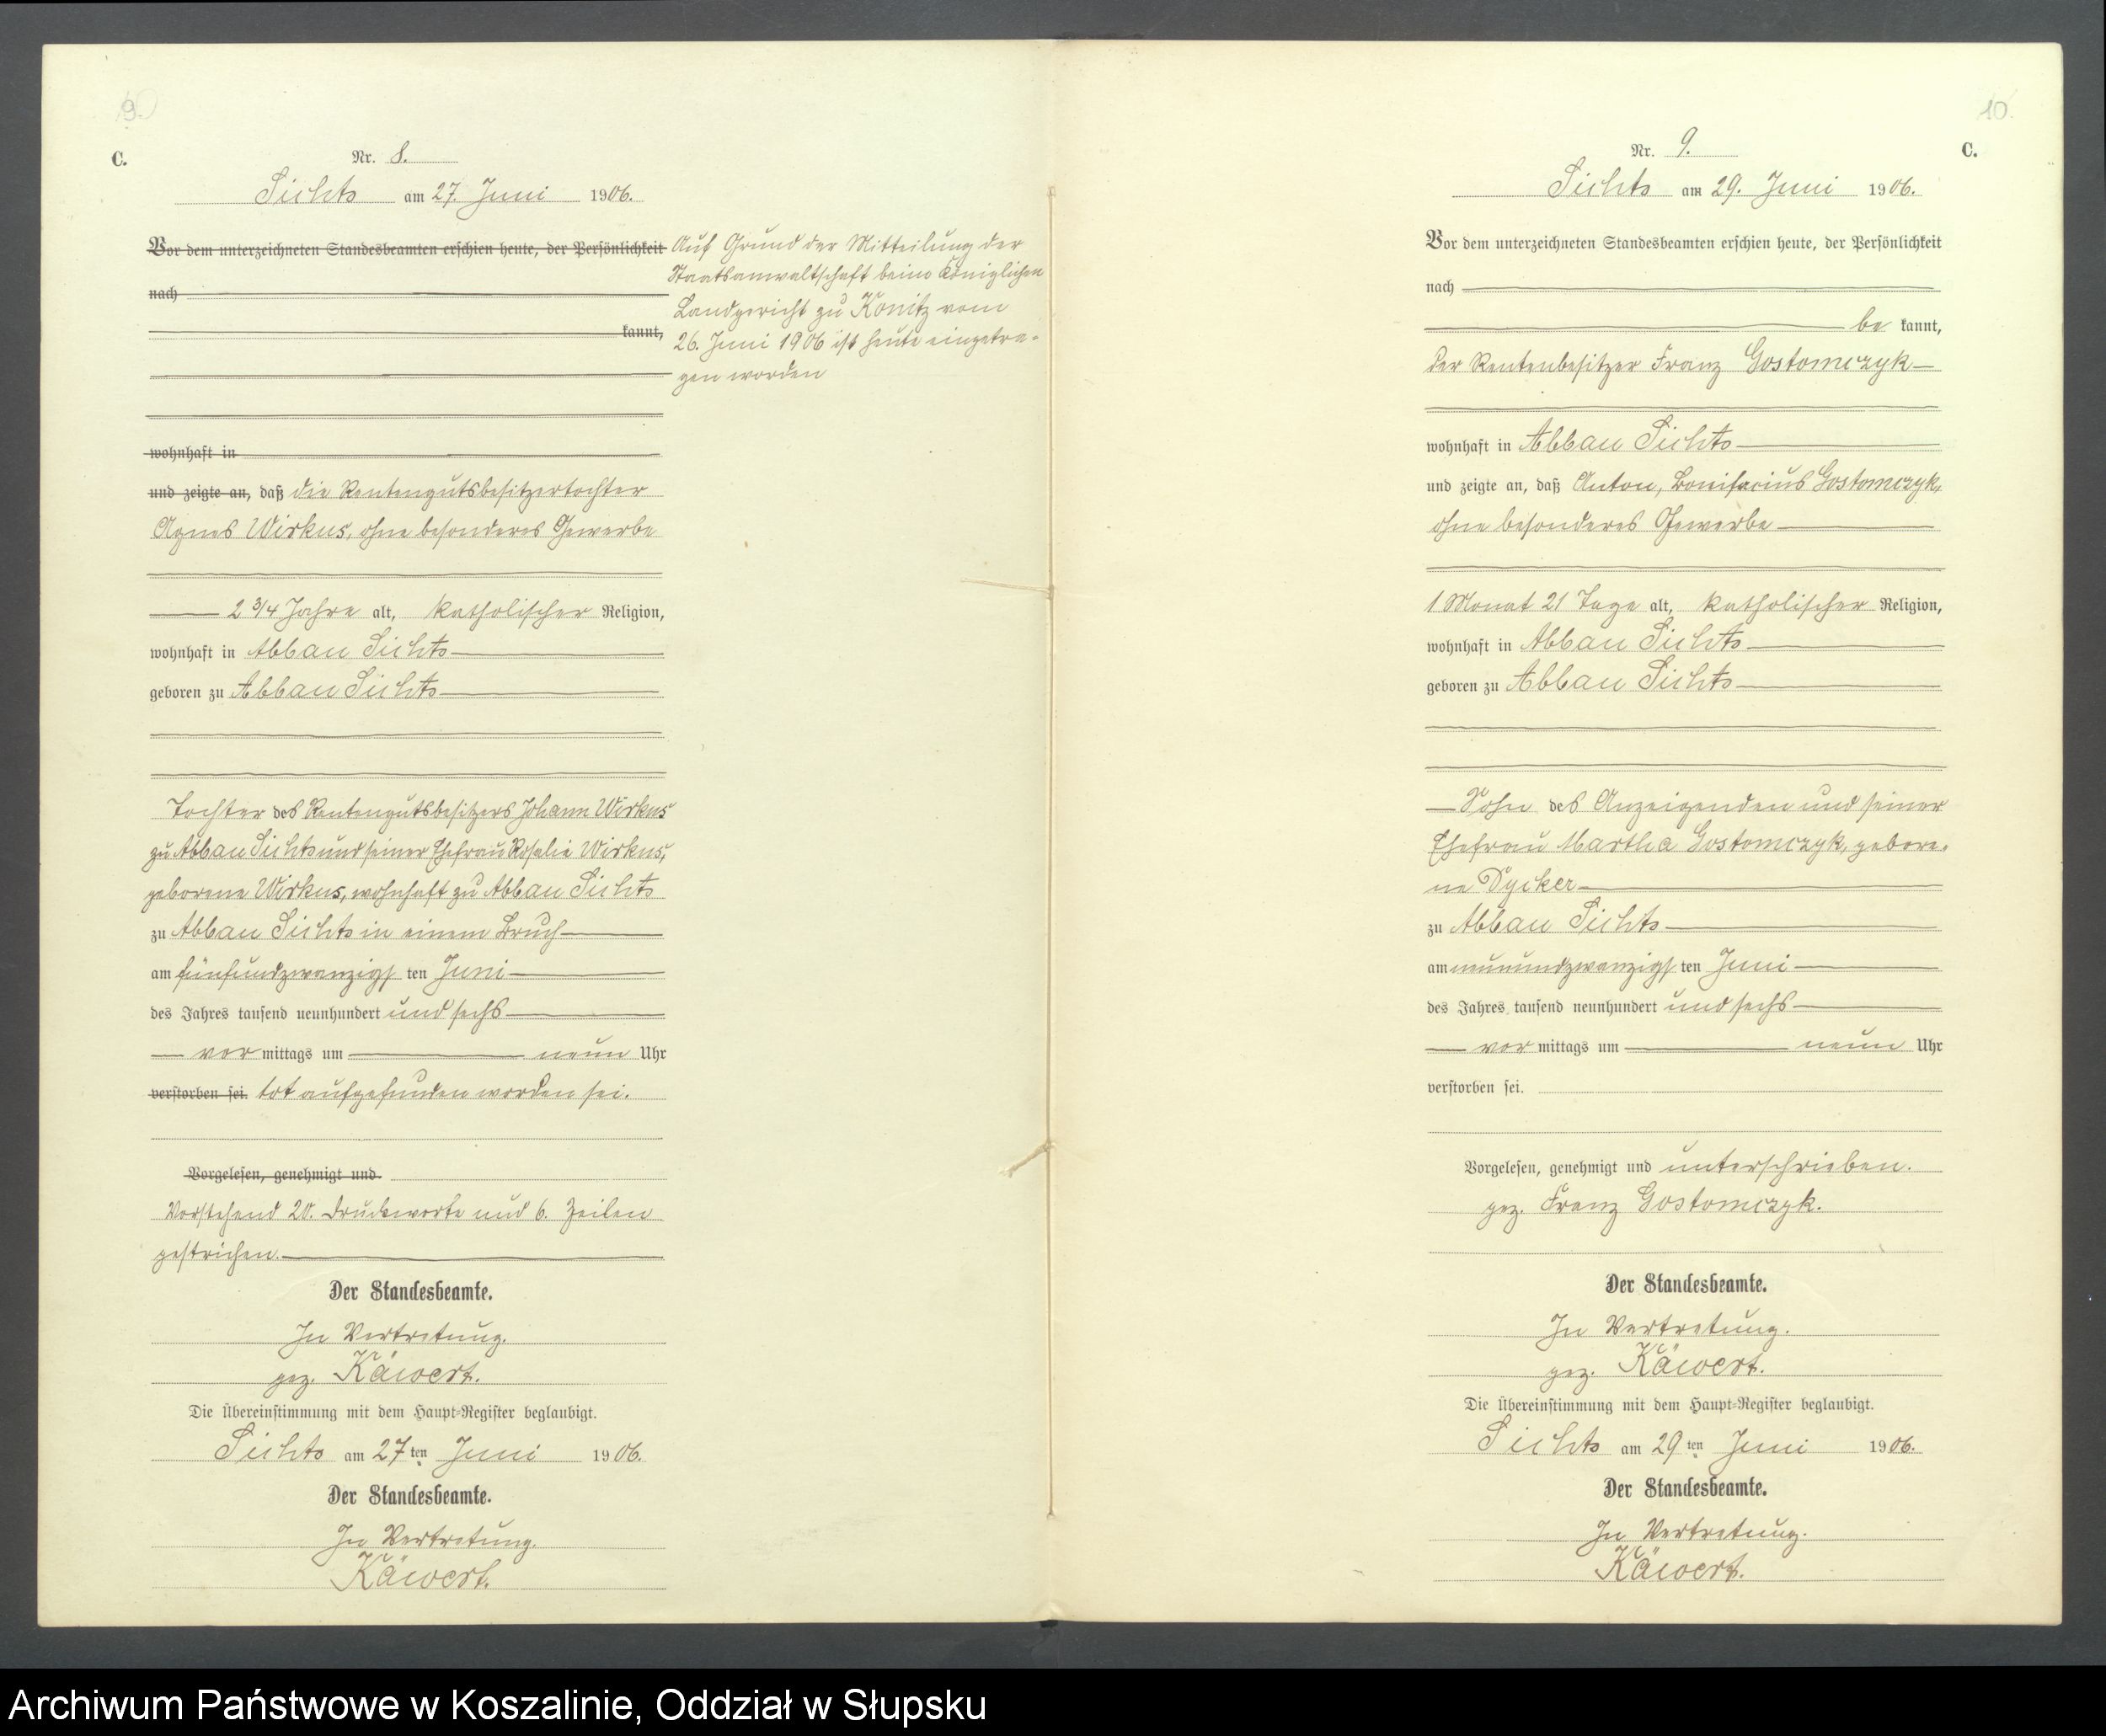 9.
C.
Nr. 8.
Sichts am 27. Juni 1906.
Vor dem unterzeichneten Standesbeamten erschien heute, der Persönlichkeit
nach
kannt,
wohnhaft in
und zeigte an, daß die Rentengutsbesitzertochter
Agnes Wirkus, ohne besonderes Gewerbe
2 3/4 Jahre alt, katholischer Religion,
wohnhaft in Abbau Sichts
geboren zu Abbau Sichts
Tochter des Rentengutsbesitzers Johann Wirkus
zu Abbau Sichts und seiner Ehefrau Rosalie Wirkus,
geborene Wirkus, wohnhaft zu Abbau Sichts
zu Abbau Sichts in einem Bruch
am fünfundzwanzigsten Juni
des Jahres tausend neunhundert und sechs
vormittags um neun Uhr
verstorben sei. tot aufgefunden worden sei.
Vorgelesen, genehmigt und
Vorstehend 20. Druckworte und 6. Zeilen
gestrichen.
Der Standesbeamte.
In Vertretung.
gez. Käwert.
Die Übereinstimmung mit dem Haupt-Register beglaubigt.
Sichts am 27ten Juni 1906.
Der Standesbeamte.
In Vertretung.
Käwert.
Auf Grund der Mitteilung der
Staatsanwaltschaft beim Königlichen
Landgericht zu Konitz vom
26. Juni 1906 ist heute eingetra-
gen worden
10.
C.
Nr. 9.
Sichts am 29. Juni 1906.
Vor dem unterzeichneten Standesbeamten erschien heute, der Persönlichkeit
nach
be kannt,
der Rentenbesitzer Franz Gostomczyk
wohnhaft in Abbau Sichts
und zeigte an, daß Anton, Bonifacius Gostomczyk,
ohne besonderes Gewerbe
1 Monat 21 Tage alt, katholischer Religion,
wohnhaft in Abbau Sichts
geboren zu Abbau Sichts
Sohn des Anzeigenden und seiner
Ehefrau Martha Gostomczyk, gebore-
ne Dycker
zu Abbau Sichts
am neunundzwanzigsten Juni
des Jahres tausend neunhundert und sechs
vormittags um neun Uhr
verstorben sei.
Vorgelesen, genehmigt und unterschrieben.
gez. Franz Gostomczyk.
Der Standesbeamte.
In Vertretung.
gez. Käwert.
Die Übereinstimmung mit dem Haupt-Register beglaubigt.
Sichts am 29ten Juni 1906.
Der Standesbeamte.
In Vertretung.
Käwert.
Archiwum Państwowe w Koszalinie, Oddział w Słupsku